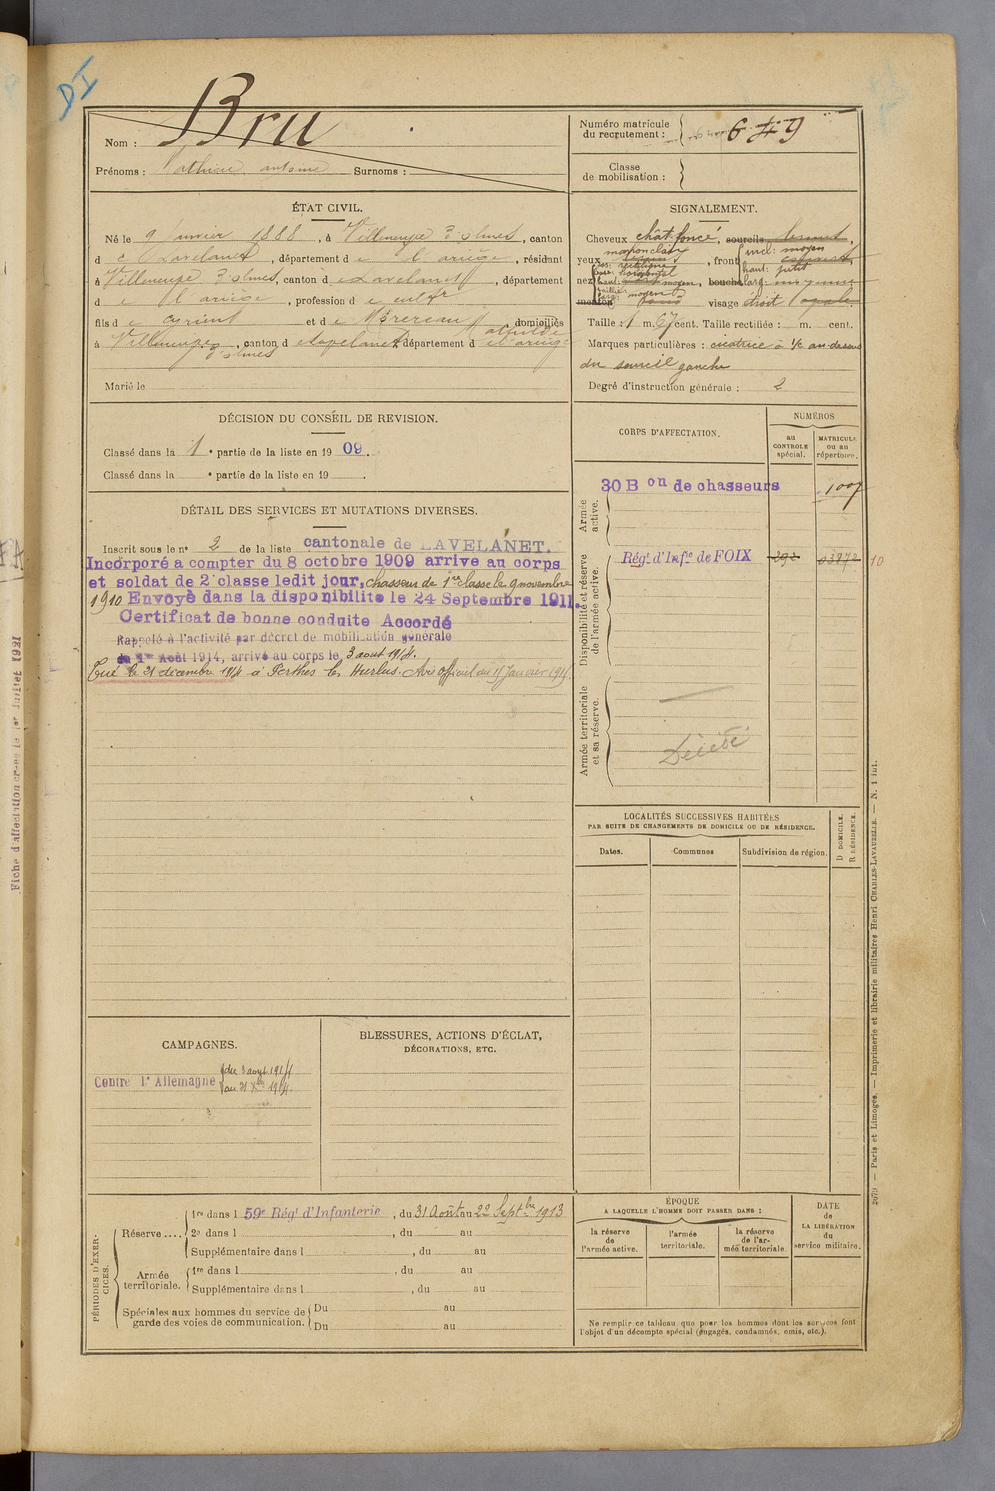 DI
Nom : Bru
Prénoms : Mathieu antoine Surnoms :
Numéro matricule
du recrutement : 649
Classe
de mobilisation :
ÉTAT CIVIL.
Né le 9 janvier 1888, à Villeneuve d'olmes, canton
de Lavelanet, département de l'ariège, résidant
à Villeneuve d'olmes, canton de Lavelanet, département
de l'ariège, profession de cultr
fils de cyrient et de domiciliés
à Villeneuve d'olmes, canton de Lavelanet département de l'ariège
Marié le
SIGNALEMENT.
Cheveux chât. foncé, sourcils
yeux marron clair, front incl: moyen
haut: petit
nez dos: rectiligne
base: horizontal
haut: moyen, bouche larg:
saillie:
larg: moyen
menton visage étroit ovale
Taille : 1 m. 67 cent. Taille rectifiée : m. cent.
Marques particulières : cicatrice à 1/2 au-dessus
du sourcil gauche
Degré d'instruction générale : 2
DÉCISION DU CONSEIL DE REVISION.
Classé dans la 1e partie de la liste en 1909.
Classé dans la e partie de la liste en 19 .
DÉTAIL DES SERVICES ET MUTATIONS DIVERSES.
Inscrit sous le n° 2 de la liste cantonale de LAVELANET.
Incorporé a compter du 8 octobre 1909 arrive au corps
et soldat de 2e classe ledit jour, chasseur de 1re classe le 9 novembre
1910 Envoyé dans la disponibilité le 24 Septembre 1911.
Certificat de bonne conduite Accordé
Rappelé à l'activité par décret de mobilisation générale
du 1er Août 1914, arrivé au corps le 3 août 1914.
Tué le 21 décembre 1914 à Perthes les Hurlus. Avis officiel du 15 Janvier 1915
CORPS D'AFFECTATION.
NUMÉROS
au
CONTROLE
spécial.
MATRICULE
ou au
répertoire.
Armée
active.
30 Bon de chasseurs 1007
Disponibilité et réserve
de l'armée active.
Régt d'Infie de FOIX 292 03972 10
Armée territoriale
et sa réserve.
Décédé
LOCALITÉS SUCCESSIVES HABITÉES
PAR SUITE DE CHANGEMENTS DE DOMICILE OU DE RÉSIDENCE.
Dates.
Communes
Subdivision de région.
D DOMICILE.
R RÉSIDENCE.
CAMPAGNES.
Contre l'Allemagne du 3 août 1914
au 21 Xbre 1914
BLESSURES, ACTIONS D'ÉCLAT,
DÉCORATIONS, ETC.
PÉRIODES D'EXER-
CICES.
Réserve .... 1re dans l 59e Régt d'Infanterie, du 31 Août au 22 Septbre 1913
2e dans l , du au
Supplémentaire dans l , du au
Armée
territoriale. 1re dans l , du au
Supplémentaire dans l , du au
Spéciales aux hommes du service de
garde des voies de communication. Du au
Du au
ÉPOQUE
A LAQUELLE L'HOMME DOIT PASSER DANS :
la réserve
de
l'armée active.
l'armée
territoriale.
la réserve
de l'ar-
mée territoriale.
DATE
de
LA LIBÉRATION
du
service militaire.
Ne remplir ce tableau que pour les hommes dont les services font
l'objet d'un décompte spécial (engagés, condamnés, omis, etc.).
2079. — Paris et Limoges. — Imprimerie et librairie militaires Henri CHARLES-LAVAUZELLE. — N. 1 int.
Fiche d'affectation créée le 1er Juillet 1921